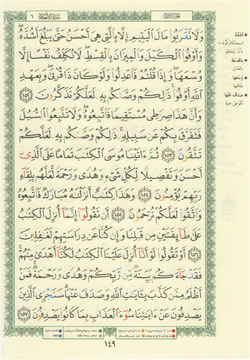 وَلَا تَقْرَبُوا۟ مَالَ ٱلْيَتِيمِ إِلَّا بِٱلَّتِى هِىَ أَحْسَنُ حَتَّىٰ يَبْلُغَ أَشُدَّهُۥ
وَأَوْفُوا۟ ٱلْكَيْلَ وَٱلْمِيزَانَ بِٱلْقِسْطِ لَا نُكَلِّفُ نَفْسًا إِلَّا
وُسْعَهَا وَإِذَا قُلْتُمْ فَٱعْدِلُوا۟ وَلَوْ كَانَ ذَا قُرْبَىٰ وَبِعَهْدِ
ٱللَّهِ أَوْفُوا۟ ذَٰلِكُمْ وَصَّىٰكُم بِهِۦ لَعَلَّكُمْ تَذَكَّرُونَ ١٥٢
وَأَنَّ هَـٰذَا صِرَٰطِى مُسْتَقِيمًا فَٱتَّبِعُوهُ وَلَا تَتَّبِعُوا۟ ٱلسُّبُلَ
فَتَفَرَّقَ بِكُمْ عَن سَبِيلِهِۦ ذَٰلِكُمْ وَصَّىٰكُم بِهِۦ لَعَلَّكُمْ
تَتَّقُونَ ١٥٣ ثُمَّ ءَاتَيْنَا مُوسَى ٱلْكِتَـٰبَ تَمَامًا عَلَى ٱلَّذِىٓ
أَحْسَنَ وَتَفْصِيلًا لِّكُلِّ شَىْءٍ وَهُدًى وَرَحْمَةً لَّعَلَّهُم بِلِقَآءِ
رَبِّهِمْ يُؤْمِنُونَ ١٥٤ وَهَـٰذَا كِتَـٰبٌ أَنزَلْنَـٰهُ مُبَارَكٌ فَٱتَّبِعُوهُ
وَٱتَّقُوا۟ لَعَلَّكُمْ تُرْحَمُونَ ١٥٥ أَن تَقُولُوٓا۟ إِنَّمَآ أُنزِلَ ٱلْكِتَـٰبُ
عَلَىٰ طَآئِفَتَيْنِ مِن قَبْلِنَا وَإِن كُنَّا عَن دِرَاسَتِهِمْ لَغَـٰفِلِينَ
١٥٦ أَوْ تَقُولُوا۟ لَوْ أَنَّآ أُنزِلَ عَلَيْنَا ٱلْكِتَـٰبُ لَكُنَّآ أَهْدَىٰ مِنْهُمْ
فَقَدْ جَآءَكُم بَيِّنَةٌ مِّن رَّبِّكُمْ وَهُدًى وَرَحْمَةٌ فَمَنْ
أَظْلَمُ مِمَّن كَذَّبَ بِـَٔايَـٰتِ ٱللَّهِ وَصَدَفَ عَنْهَا سَنَجْزِى ٱلَّذِينَ
يَصْدِفُونَ عَنْ ءَايَـٰتِنَا سُوٓءَ ٱلْعَذَابِ بِمَا كَانُوا۟ يَصْدِفُونَ ١٥٧
١٤٩